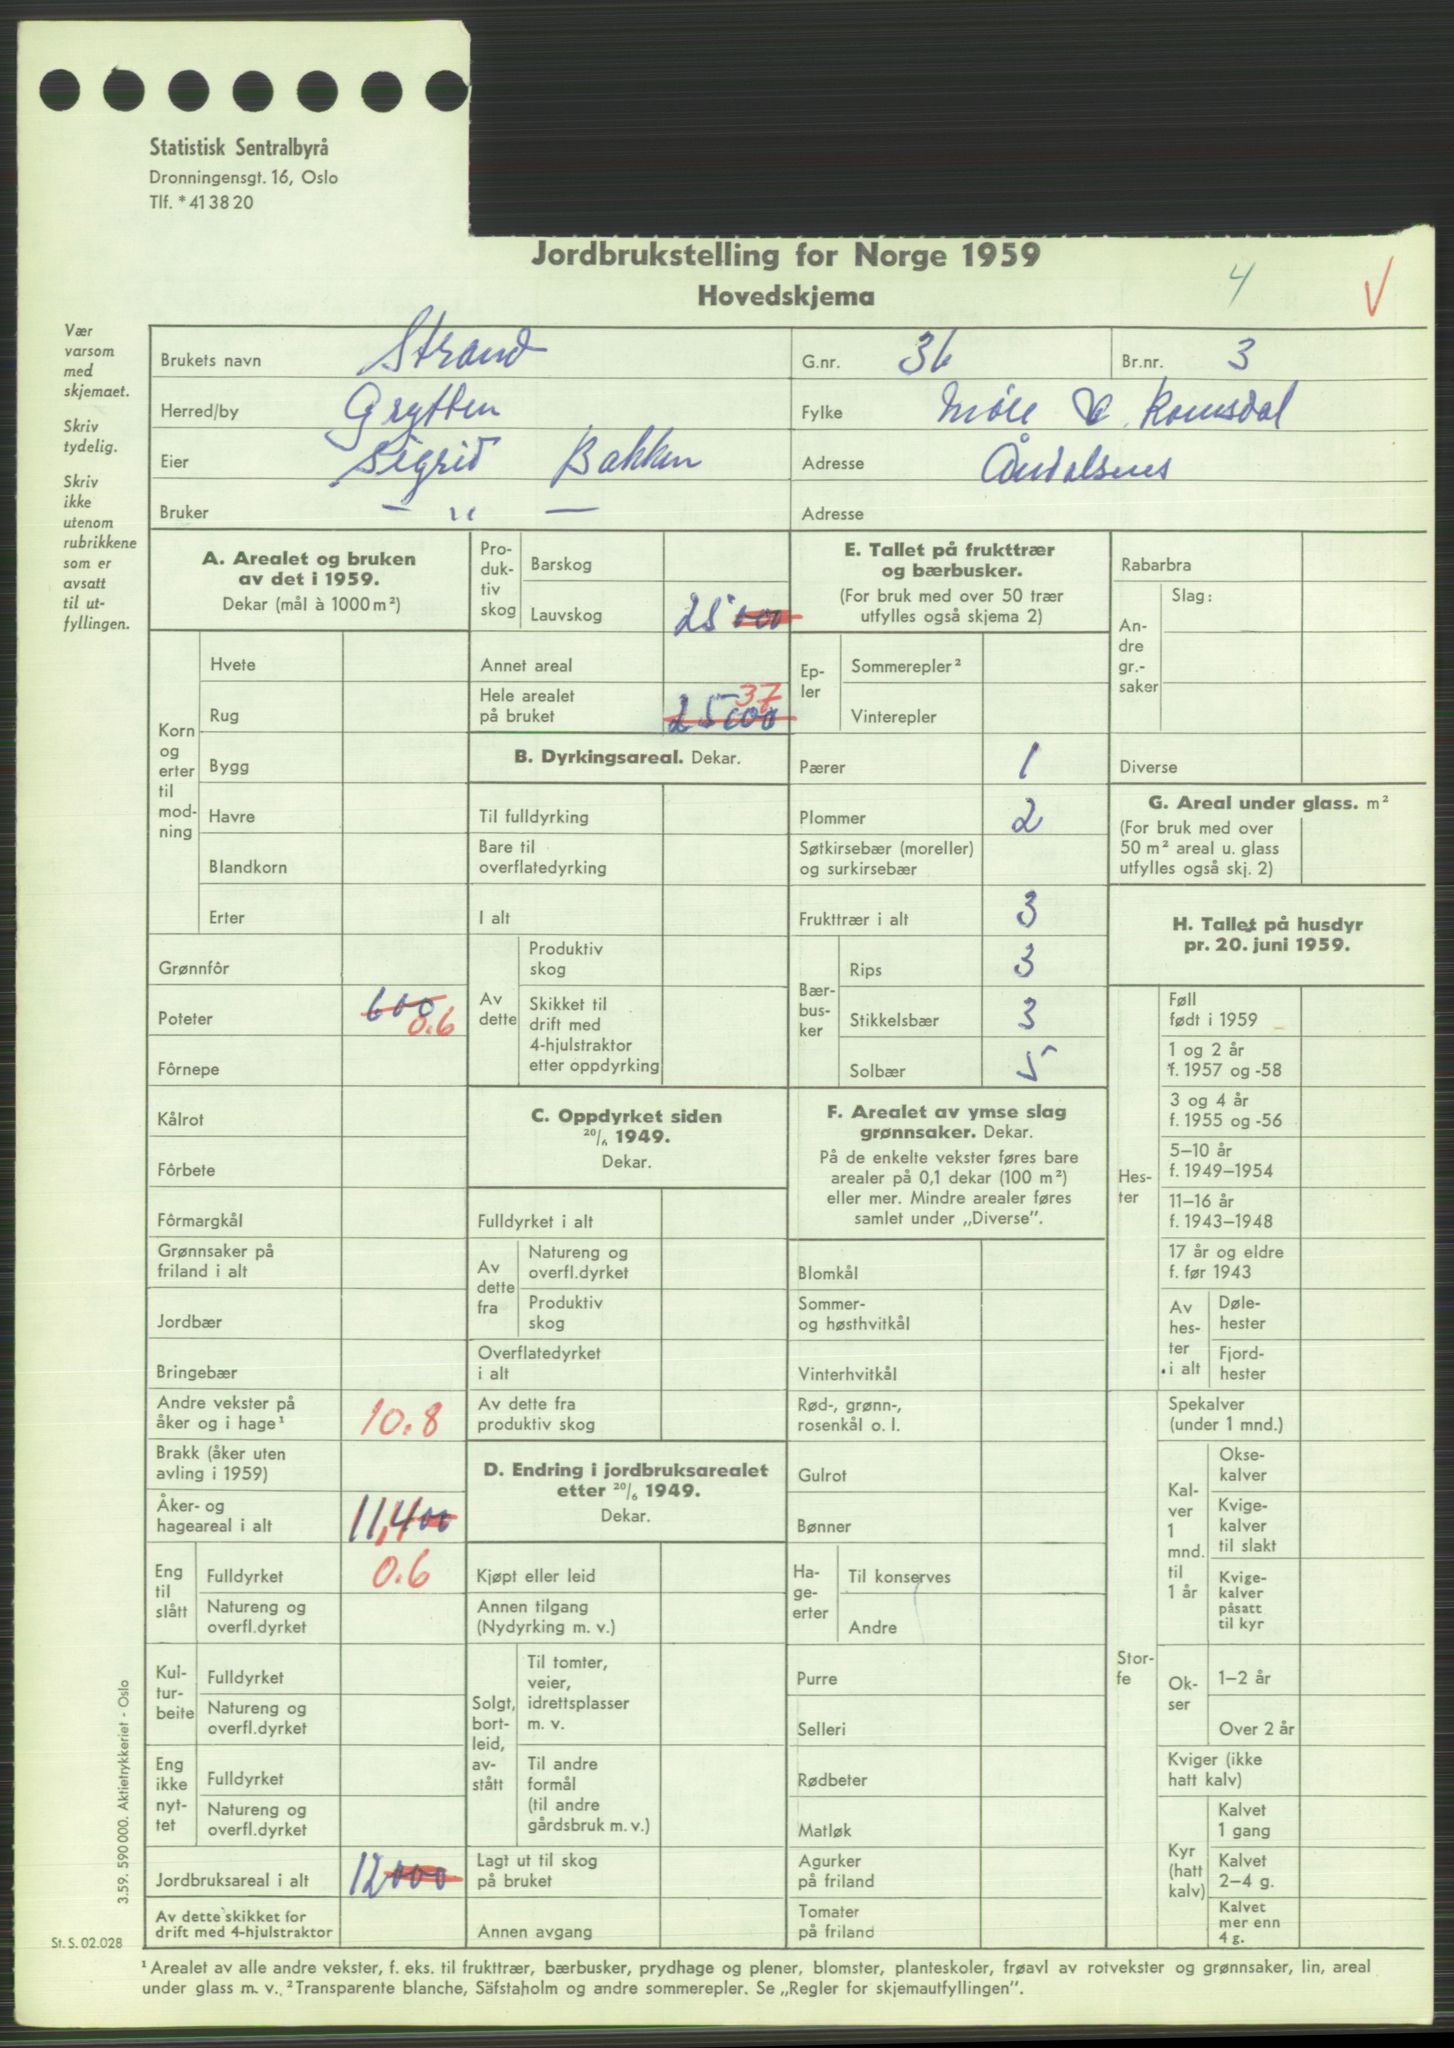 Statistisk Sentralbyrå
Dronningensgt. 16, Oslo
Tlf. * 41 38 20
Jordbrukstelling for Norge 1959
Hovedskjema
4
V
Vær
varsom
med
skjemaet.
Skriv
tydelig.
Skriv
ikke
utenom
rubrikkene
som er
avsatt
til ut-
fyllingen.
Brukets navn Strand
G.nr. 36
Br.nr. 3
Herred/by Grytten
Fylke Møre & Romsdal
Eier Sigrid Bakken
Adresse Åndalsnes
Bruker — " —
Adresse
A. Arealet og bruken
av det i 1959.
Dekar (mål à 1000 m²)
Korn
og
erter
til
mod-
ning
Hvete
Rug
Bygg
Havre
Blandkorn
Erter
Grønnfôr
Poteter 600 0.6
Fôrnepe
Kålrot
Fôrbete
Fôrmargkål
Grønnsaker på
friland i alt
Jordbær
Bringebær
Andre vekster på
åker og i hage¹ 10.8
Brakk (åker uten
avling i 1959)
Åker- og
hageareal i alt 11,400
Eng
til
slått
Fulldyrket 0.6
Natureng og
overfl.dyrket
Kul-
tur-
beite
Fulldyrket
Natureng og
overfl.dyrket
Eng
ikke
nyt-
tet
Fulldyrket
Natureng og
overfl.dyrket
Jordbruksareal i alt 12000
Av dette skikket for
drift med 4-hjulstraktor
Pro-
duk-
tiv
skog
Barskog
Lauvskog 25000
Annet areal
Hele arealet
på bruket 25000 37
B. Dyrkingsareal. Dekar.
Til fulldyrking
Bare til
overflatedyrking
I alt
Av
dette
Produktiv
skog
Skikket til
drift med
4-hjulstraktor
etter oppdyrking
C. Oppdyrket siden
20/6 1949.
Dekar.
Fulldyrket i alt
Av
dette
fra
Natureng og
overfl.dyrket
Produktiv
skog
Overflatedyrket
i alt
Av dette fra
produktiv skog
D. Endring i jordbruksarealet
etter 20/6 1949.
Dekar.
Kjøpt eller leid
Annen tilgang
(Nydyrking m. v.)
Solgt,
bort-
leid,
av-
stått
Til tomter,
veier,
idrettsplasser
m. v.
Til andre
formål
(til andre
gårdsbruk m. v.)
Lagt ut til skog
på bruket
Annen avgang
E. Tallet på frukttrær
og bærbusker.
(For bruk med over 50 trær
utfylles også skjema 2)
Ep-
ler
Sommerepler²
Vinterepler
Pærer 1
Plommer 2
Søtkirsebær (moreller)
og surkirsebær
Frukttrær i alt 3
Bær-
bus-
ker
Rips 3
Stikkelsbær 3
Solbær 5
F. Arealet av ymse slag
grønnsaker. Dekar.
På de enkelte vekster føres bare
arealer på 0,1 dekar (100 m²)
eller mer. Mindre arealer føres
samlet under „Diverse”.
Blomkål
Sommer-
og høsthvitkål
Vinterhvitkål
Rød-, grønn-,
rosenkål o. l.
Gulrot
Bønner
Ha-
ge-
erter
Til konserves
Andre
Purre
Selleri
Rødbeter
Matløk
Agurker
på friland
Tomater
på friland
Rabarbra
An-
dre
gr.-
saker
Slag:
Diverse
G. Areal under glass. m²
(For bruk med over
50 m² areal u. glass
utfylles også skj. 2)
H. Tallet på husdyr
pr. 20. juni 1959.
Hes-
ter
Føll
født i 1959
1 og 2 år
f. 1957 og -58
3 og 4 år
f. 1955 og -56
5–10 år
f. 1949–1954
11–16 år
f. 1943–1948
17 år og eldre
f. før 1943
Av
hes-
ter
i alt
Døle-
hester
Fjord-
hester
Stor-
fe
Spekalver
(under 1 mnd.)
Kal-
ver
1
mnd.
til
1 år
Okse-
kalver
Kvige-
kalver
til slakt
Kvige-
kalver
påsatt
til kyr
Ok-
ser
1–2 år
Over 2 år
Kviger (ikke
hatt kalv)
Kyr
(hatt
kalv)
Kalvet
1 gang
Kalvet
2–4 g.
Kalvet
mer enn
4 g.
3.59. 590 000. Aktietrykkeriet - Oslo
St. S. 02.028
¹ Arealet av alle andre vekster, f. eks. til frukttrær, bærbusker, prydhage og plener, blomster, planteskoler, frøavl av rotvekster og grønnsaker, lin, areal
under glass m. v. ² Transparente blanche, Säfstaholm og andre sommerepler. Se „Regler for skjemautfyllingen”.